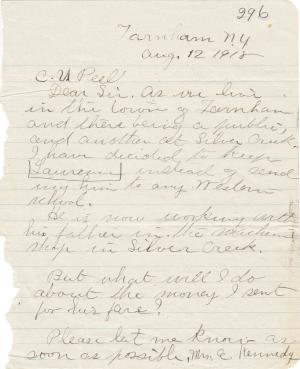 296
Farnham N.Y
Aug. 12 1918
C. U Peel
Dear Sir. As we live
in the town of Farnham
and there being a public,
and another at Silver Creek.
I have decided to keep
instead of send
ing him to any Western
school.
He is now working with
his father in the machine
shop in Silver Creek.
But what will I do
about the money I sent
for his fare.
Please let me know as
soon as possible, Mrs. E. Kennedy